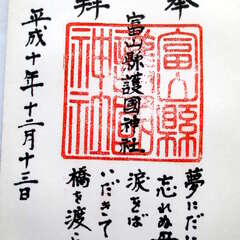 奉
拜
富山縣
護國
神社
富山縣護國神社
夢にだ
忘れぬ母
涙をば
いだきて
橋を渡
平成十年十二月十三日